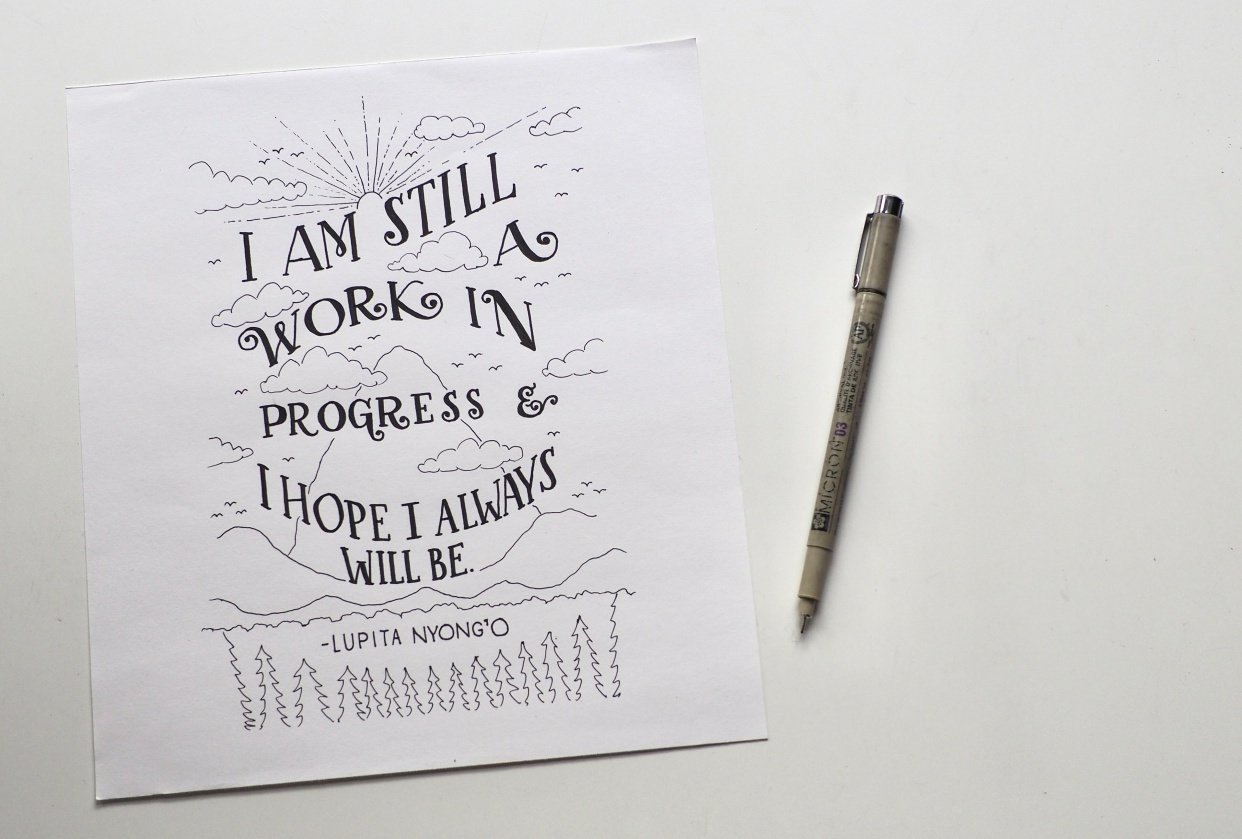 I AM STILL
A
WORK IN
PROGRESS &
I HOPE I ALWAYS
WILL BE.
-LUPITA NYONG'O
MICRON 03